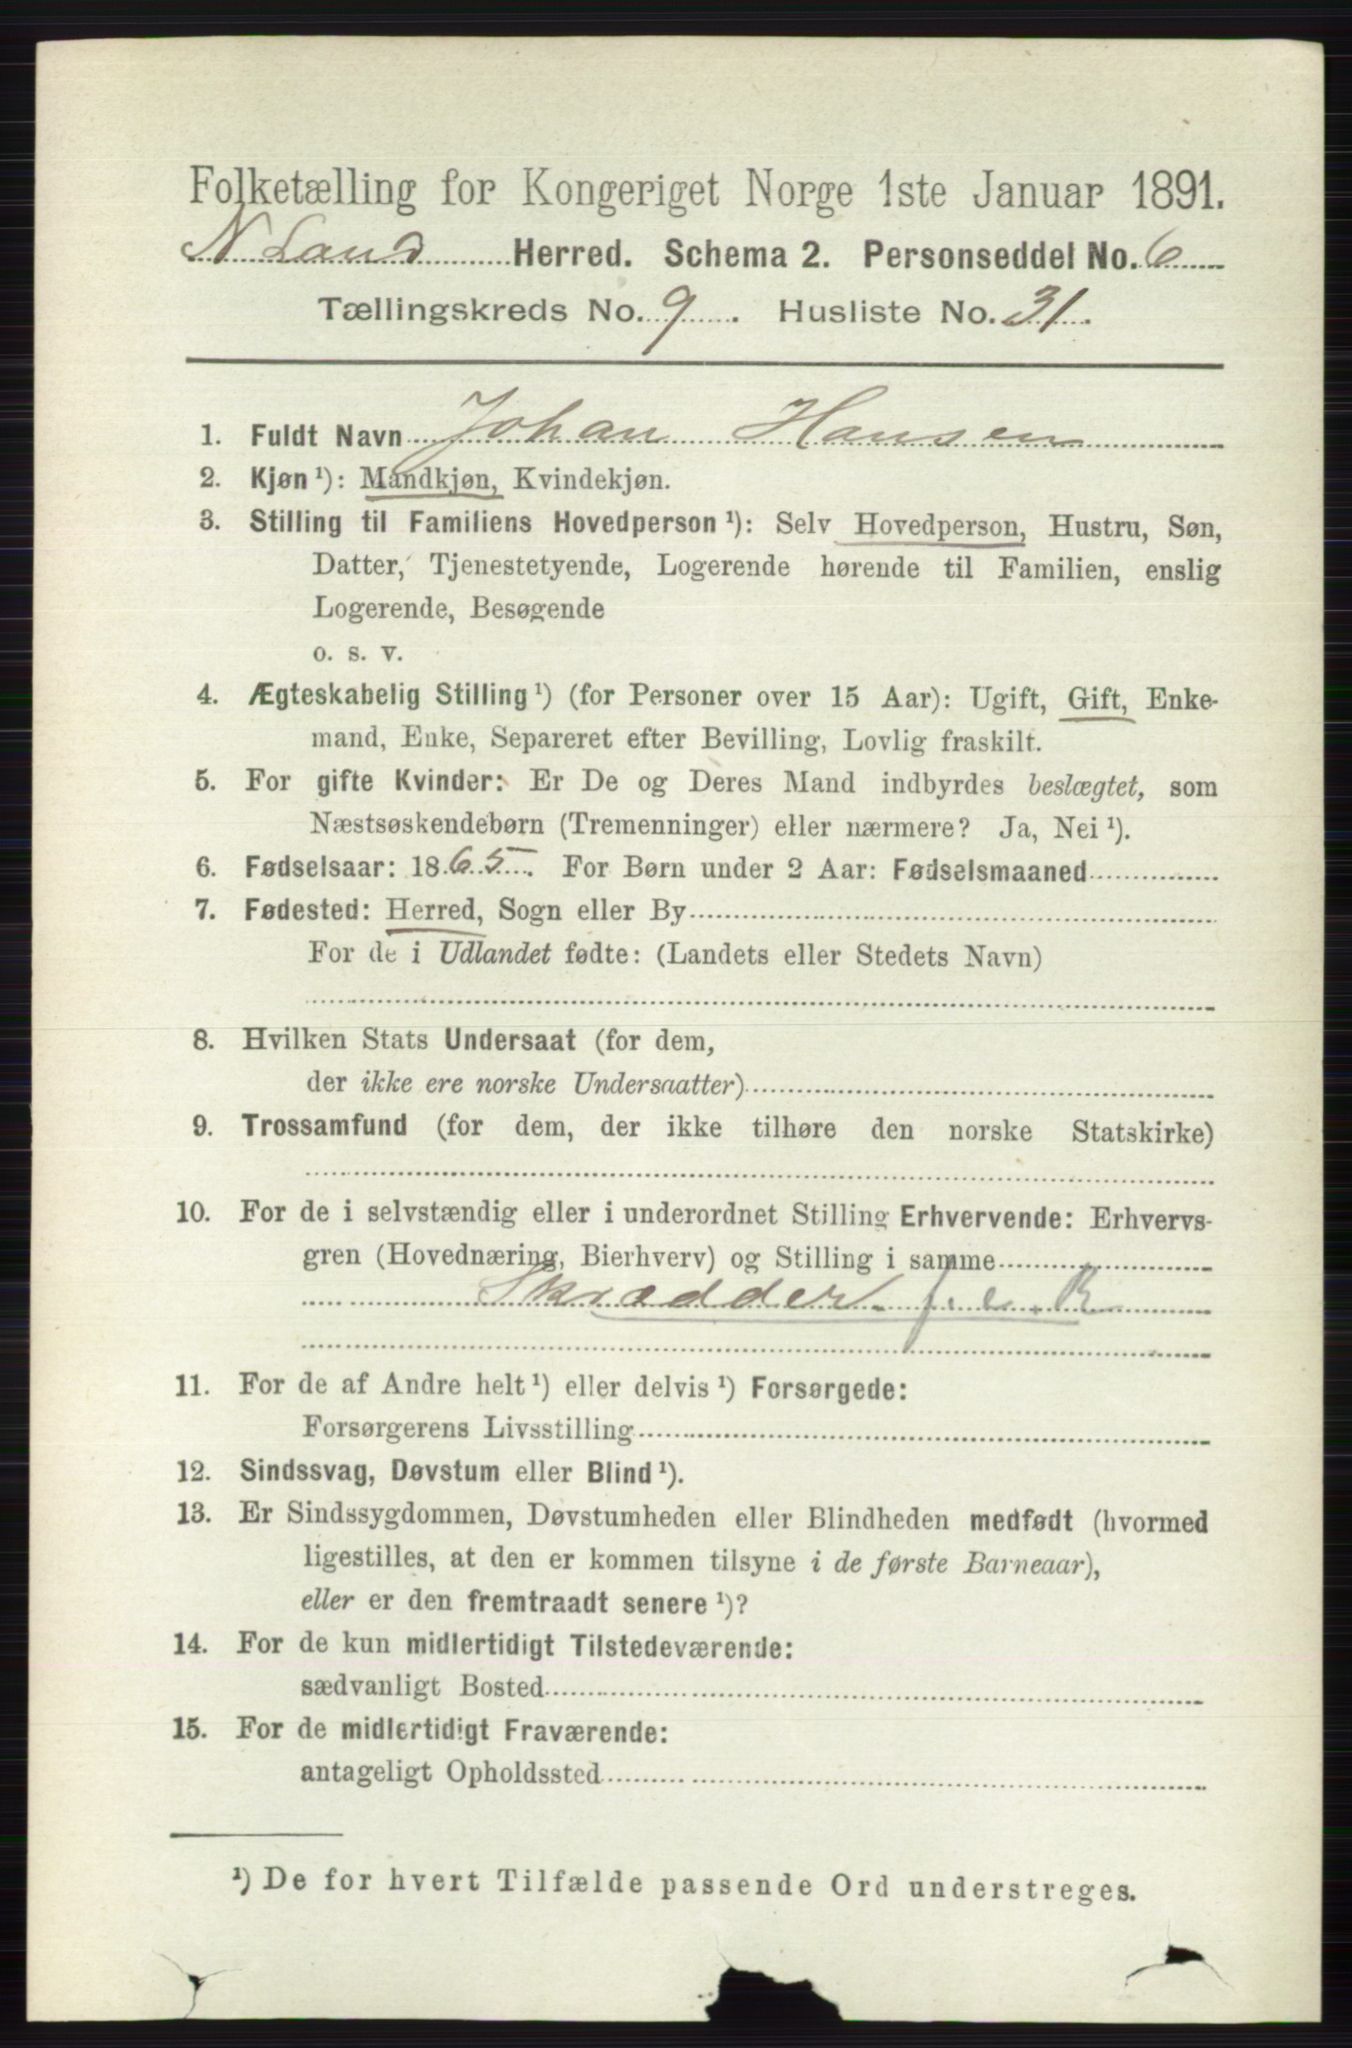 Folketælling for Kongeriget Norge 1ste Januar 1891.
N Land Herred. Schema 2. Personseddel No. 6
Tællingskreds No. 9. Husliste No. 31.
1. Fuldt Navn Johan Hansen
2. Kjøn ¹): Mandkjøn, Kvindekjøn.
3. Stilling til Familiens Hovedperson ¹): Selv Hovedperson, Hustru, Søn,
Datter, Tjenestetyende, Logerende hørende til Familien, enslig
Logerende, Besøgende
o. s. v.
4. Ægteskabelig Stilling ¹) (for Personer over 15 Aar): Ugift, Gift, Enke-
mand, Enke, Separeret efter Bevilling, Lovlig fraskilt.
5. For gifte Kvinder: Er De og Deres Mand indbyrdes beslægtet, som
Næstsøskendebørn (Tremenninger) eller nærmere? Ja, Nei ¹).
6. Fødselsaar: 1865. For Børn under 2 Aar: Fødselsmaaned
7. Fødested: Herred, Sogn eller By
For de i Udlandet fødte: (Landets eller Stedets Navn)
8. Hvilken Stats Undersaat (for dem,
der ikke ere norske Undersaatter)
9. Trossamfund (for dem, der ikke tilhøre den norske Statskirke)
10. For de i selvstændig eller i underordnet Stilling Erhvervende: Erhvervs-
gren (Hovednæring, Bierhverv) og Stilling i samme
Skrædder f. e. R
11. For de af Andre helt ¹) eller delvis ¹) Forsørgede:
Forsørgerens Livsstilling
12. Sindssvag, Døvstum eller Blind ¹).
13. Er Sindssygdommen, Døvstumheden eller Blindheden medfødt (hvormed
ligestilles, at den er kommen tilsyne i de første Barneaar),
eller er den fremtraadt senere ¹)?
14. For de kun midlertidigt Tilstedeværende:
sædvanligt Bosted
15. For de midlertidigt Fraværende:
antageligt Opholdssted
¹) De for hvert Tilfælde passende Ord understreges.